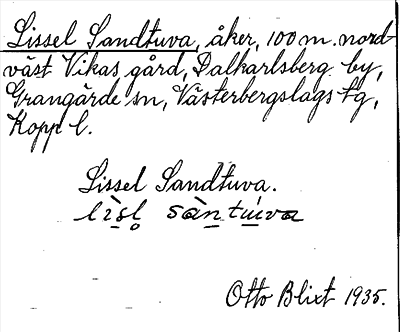 Lissel Sandtuva, åker, 100 m. nord-
väst Vikas gård, Dalkarlsberg by,
Grangärde sn, Västerbergslags tg,
Kopp l.
Lissel Sandtuva.
lìsl̥ sàntúva
Otto Blixt 1935.